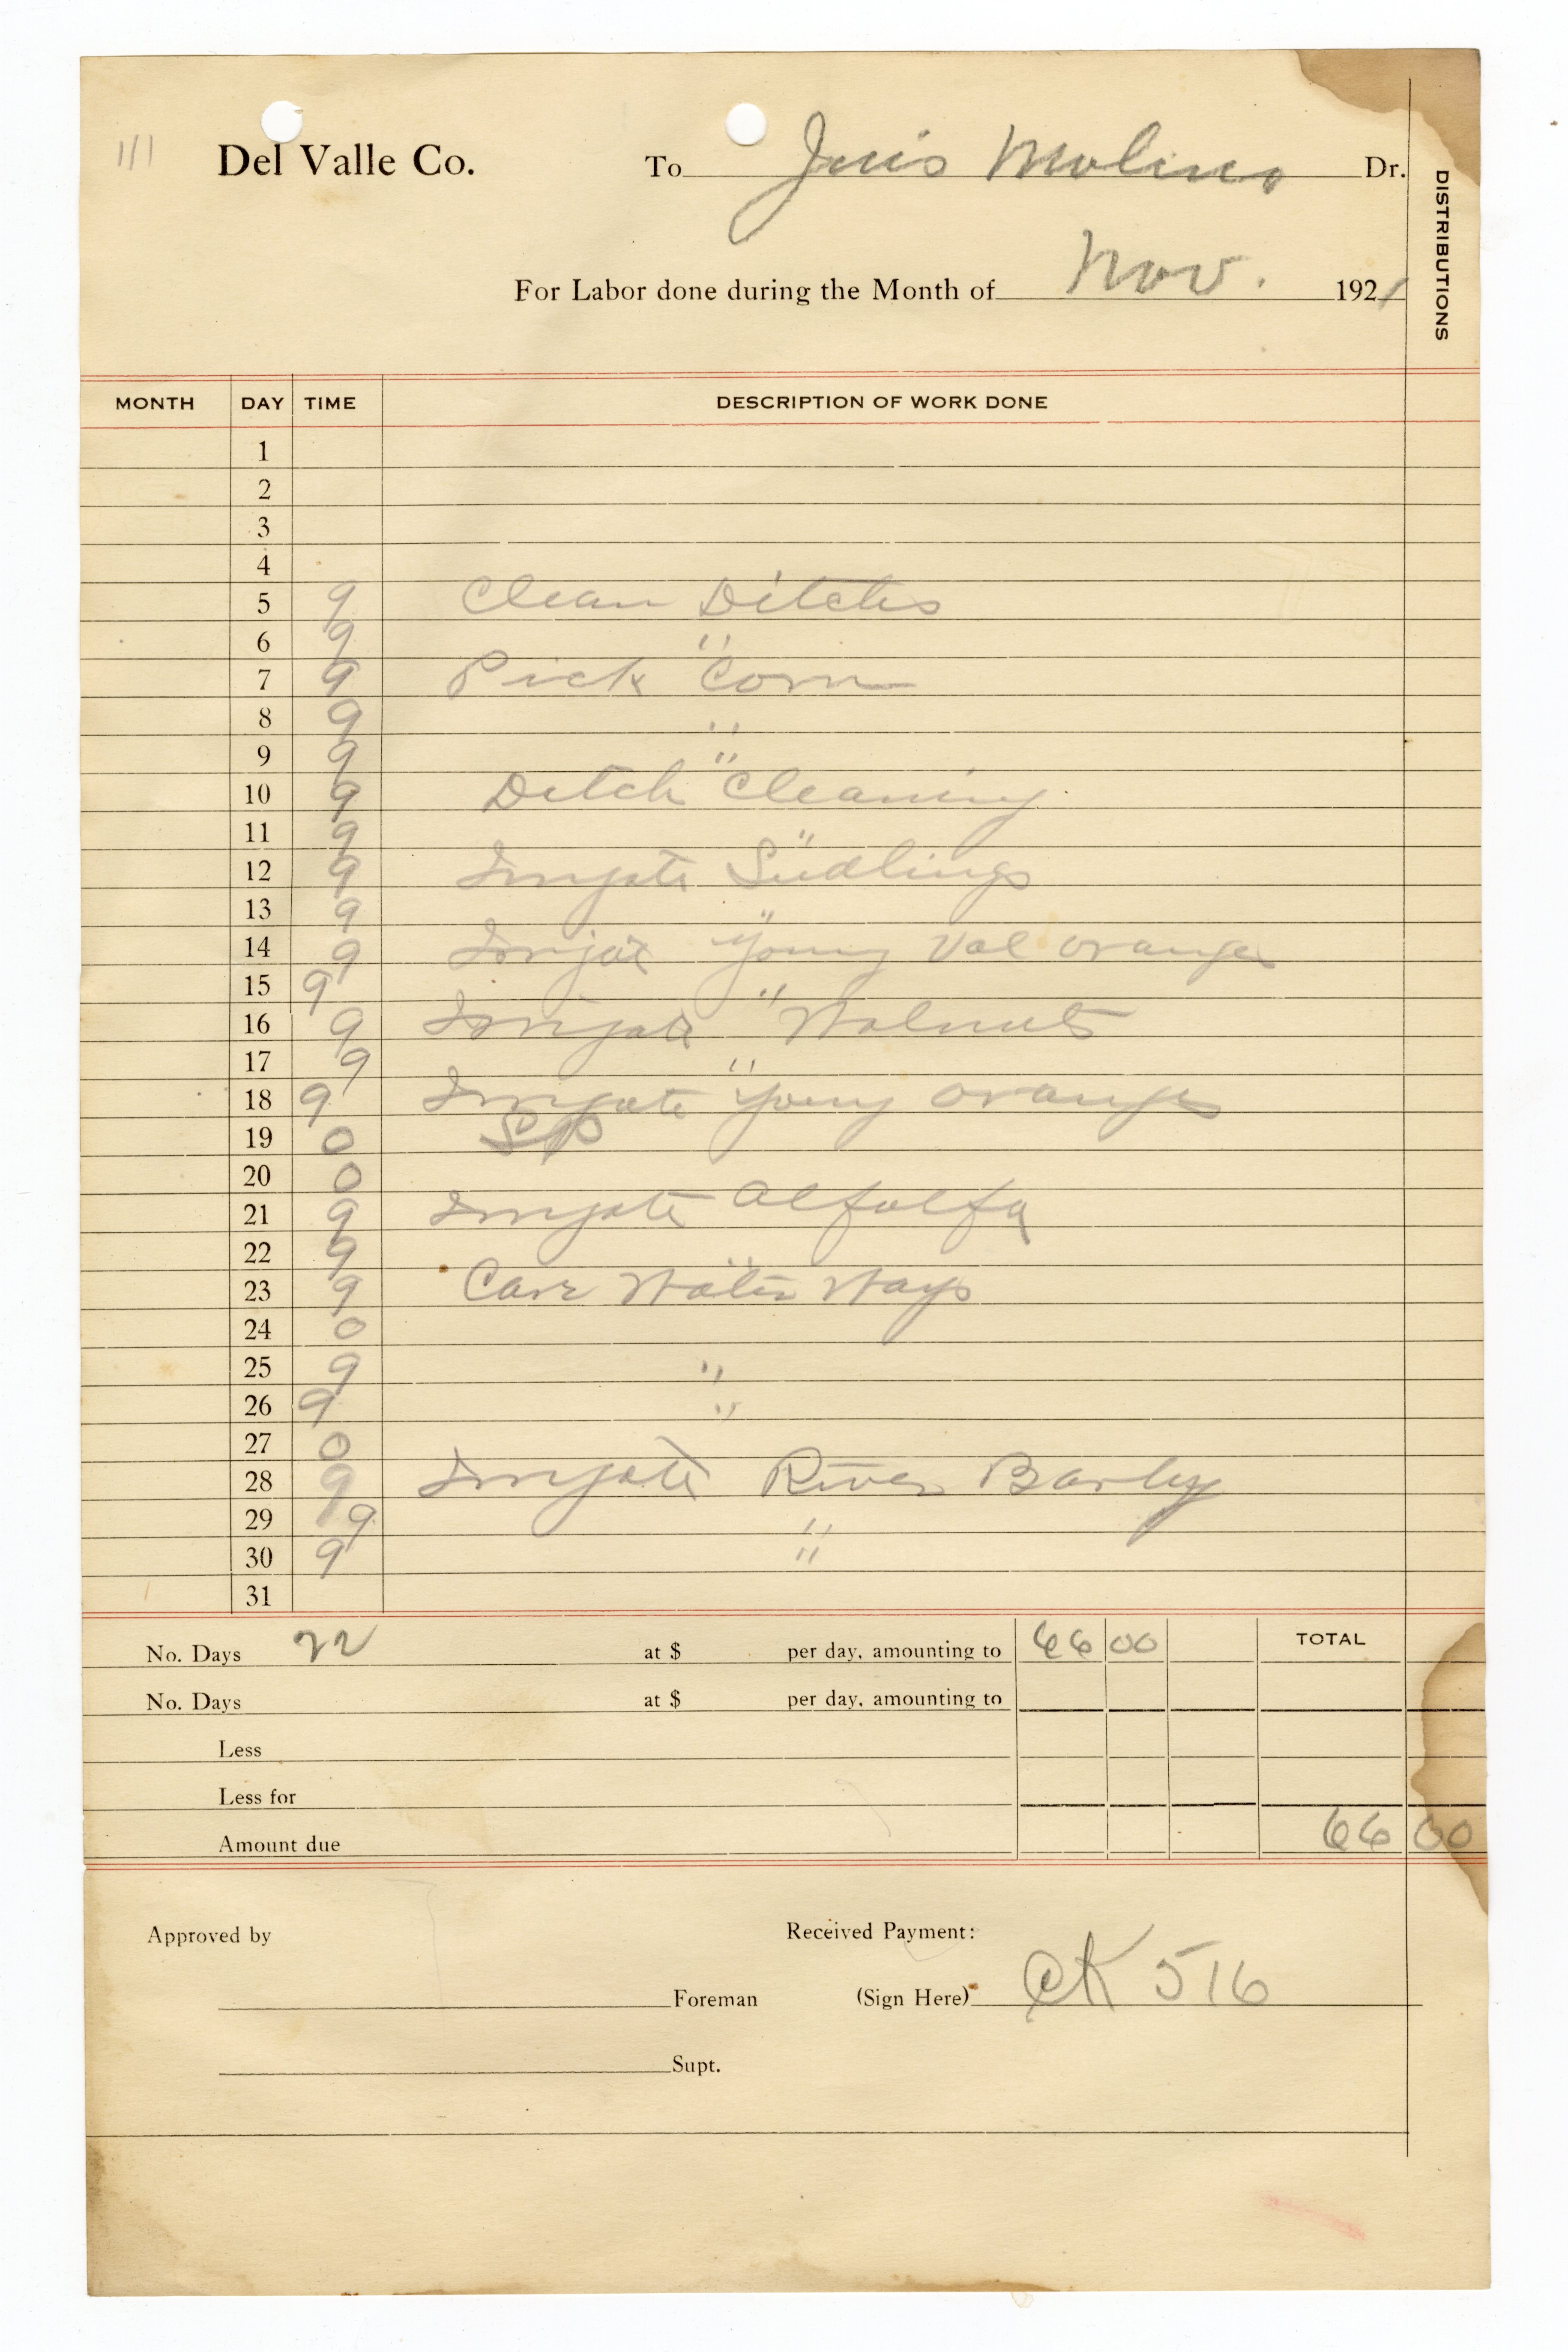 111
Del Valle Co. To Molino Dr.
DISTRIBUTIONS
For Labor done during the Month of Nov. 1921
MONTH DAY TIME DESCRIPTION OF WORK DONE
1
2
3
4
5 9 Clean Ditches
6 9 "
7 9 Pick Corn
8 9 "
9 9 "
10 9 Ditch Cleaning
11 9 "
12 9 Irrigate Seedlings
13 9 "
14 9 Irrigate Young Val oranges
15 9 "
16 9 Irrigate Walnuts
17 9 "
18 9 Irrigate Young oranges
19 0
20 0
21 9 Irrigate Alfalfa
22 9 "
23 9 Care Water Ways
24 0
25 9 "
26 9 "
27 0
28 9 Irrigate River Barly
29 9 "
30 9 "
31
No. Days 22 at $ per day, amounting to 66 00 TOTAL
No. Days at $ per day, amounting to
Less
Less for
Amount due 66 00
Approved by Received Payment:
Foreman (Sign Here) CK 516
Supt.